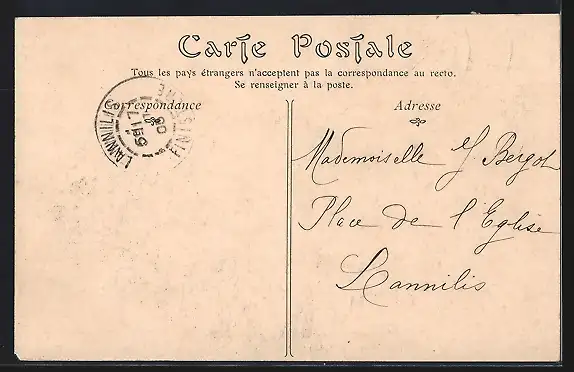 Carte Postale
Tous les pays étrangers n'acceptent pas la correspondance au recto.
Se renseigner à la poste.
Correspondance
Adresse
LANNILIS
FINISTERE
Mademoiselle Y Bergot
Place de l'Eglise
Lannilis